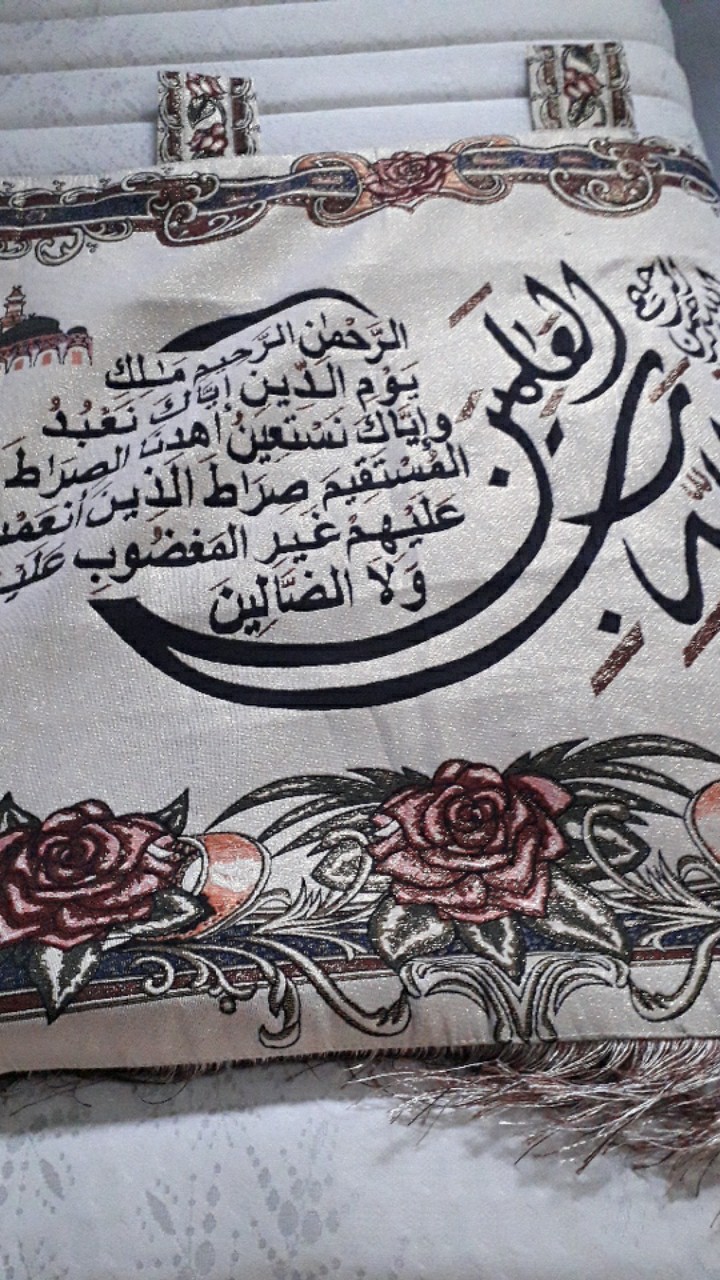 رب العالمين
الرَّحْمٰنِ الرَّحيمِ مَـٰلِكِ
يَوْمِ الدِّينِ إيَّاكَ نَعْبُدُ
وإيَّاكَ نَسْتَعِينُ اهدِنَا الصِرَاطَ
المُسْتَقِيمَ صِرَاطَ الَذِينَ أنعَمْتَ
عَلَيْهِمْ غَيرِ المَغضُوبِ
وَلَا الضَّالِينَ